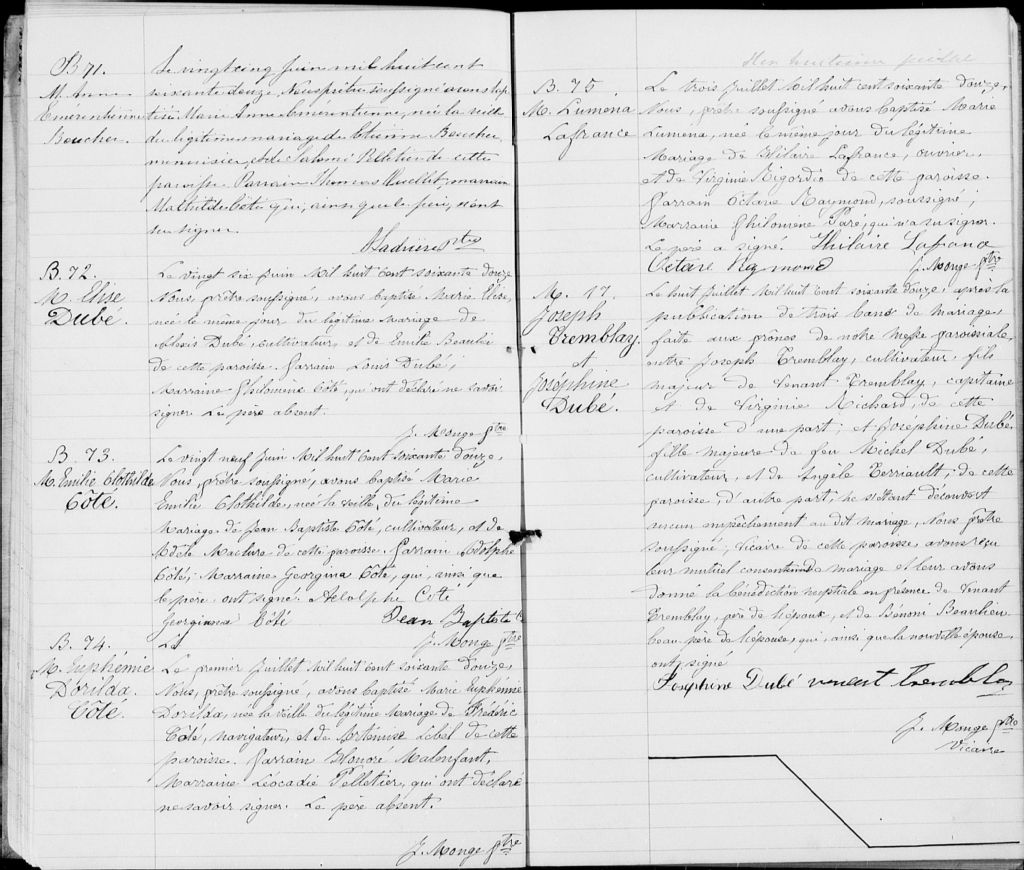 B 71.
M. Anne
Emérentienne
Boucher.
Le vingt cinq juin mil huit cent
soixante douze, Nous prêtre soussigné avons bap
tisé Marie Anne Emérentienne, née la veille
du légitime mariage de Etienne Boucher
menuisier, & de Salomé Pelletier de cette
paroisse. Parrain Thomas Ouellet, marraine
Mathilde qui, ainsi que le père, n'ont
su signer.
Ptre
B. 72.
M. Elise
Dubé.
Le vingt six Juin Mil huit cent soixante douze
Nous, prêtre soussigné, avons baptisé Marie Elise,
née le même jour du légitime Mariage de
Alexis Dubé, cultivateur, et de Emilie Beaulieu
de cette paroisse. Parrain Louis Dubé,
Marraine Philomène Côté, qui ont déclaré ne savoir
signer. Le père absent.
J. Monge Ptre
B. 73.
M. Emilie Clothilde
Côté.
Le vingt neuf Juin Mil huit cent soixante douze,
Nous, prêtre soussigné, avons baptisé Marie
Emilie Clothilde, née la veille, du légitime
Mariage de Jean Baptiste Côté, cultivateur, et de
Adèle Maclure de cette paroisse. Parrain Adolphe
Côté; Marraine Georgina Côté, qui, ainsi que
le père ont signé. Adolphe Coté
Georgianna Côté Jean Baptiste C
J. Monge Ptre
B. 74.
M. Euphémie
Dorilda.
Côté.
Le
Le premier Juillet Mil huit cent soixante douze,
Nous, prêtre soussigné, avons baptisé Marie Euphémie
Dorilda, née la veille du légitime Mariage de Frédéric
Côté, navigateur, et de Artémise Lebel de cette
paroisse. Parrain Honoré Malenfant,
Marraine Léocadie Pelletier, qui ont déclaré
ne savoir signer. Le père absent.
J. Monge Ptre
B. 75.
M. Lumena
Lafrance
Le trois Juillet Mil huit cent soixante douze,
Nous, prêtre soussigné avons baptisé Marie
Lumena, née le même jour du légitime
Mariage de Hilaire Lafrance, ouvrier,
et de Virginie de cette paroisse.
Parrain Octave Raymond, soussigné,
Marraine Philomène Paré, qui n'a su signer.
Le père a signé. Hilaire Lafrance
Octave J. Monge Ptre
M. 17.
Joseph
Tremblay.
et
Joséphine
Dubé.
Le huit Juillet Mil huit cent soixante douze, après la
publication de trois bans de mariage,
faite aux prônes de notre Messe paroissiale,
entre Joseph Tremblay, cultivateur, fils
majeur de Venant Tremblay, capitaine
et de Virginie Richard, de cette
paroisse d'une part; et Joséphine Dubé
fille majeure de feu Michel Dubé,
cultivateur, et de Angèle Terriault, de cette
paroisse, d'autre part, ne s'étant découvert
aucun empêchement au dit mariage, Nous prêtre
soussigné, Vicaire de cette paroisse avons reçu
leur mutuel consentement de mariage et leur avons
donné la bénédiction nuptiale en présence de Venant
Tremblay, père de l'époux, et de Bénoni Beaulieu
beau père de l'épouse, qui, ainsi que la nouvelle épouse,
ont signé
Joséphine Dubé venent tremblay
J. Monge Ptre
Vicaire